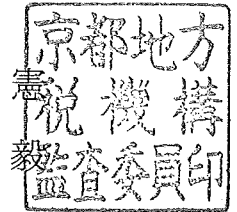 京都地方
税機構
監査委員印
憲
毅